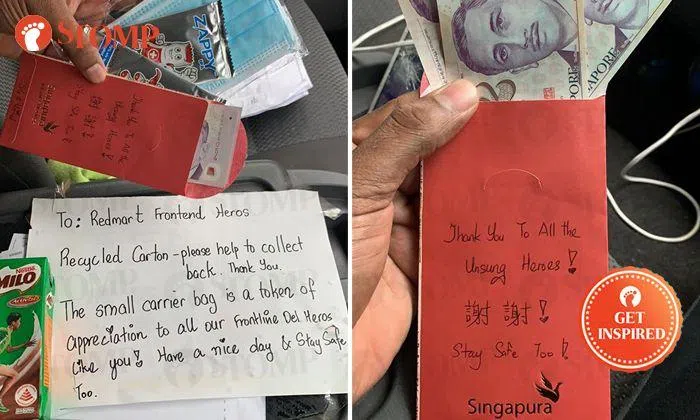 STOMP
ZAPPY
Thank You To All the
Unsung Heroes!
謝 謝!
Stay Safe Too!
Singapura
To: Redmart Frontend Heros
Recycled Carton - please help to collect
back. Thank You.
The small carrier bag is a token of
appreciation to all our Frontline Del Heros
like you! Have a nice day & Stay Safe
Too.
Nestlé
MILO
PORE
APORE
Thank You To All the
Unsung Heroes!
謝 謝!
Stay Safe Too!
Singapura
GET
INSPIRED